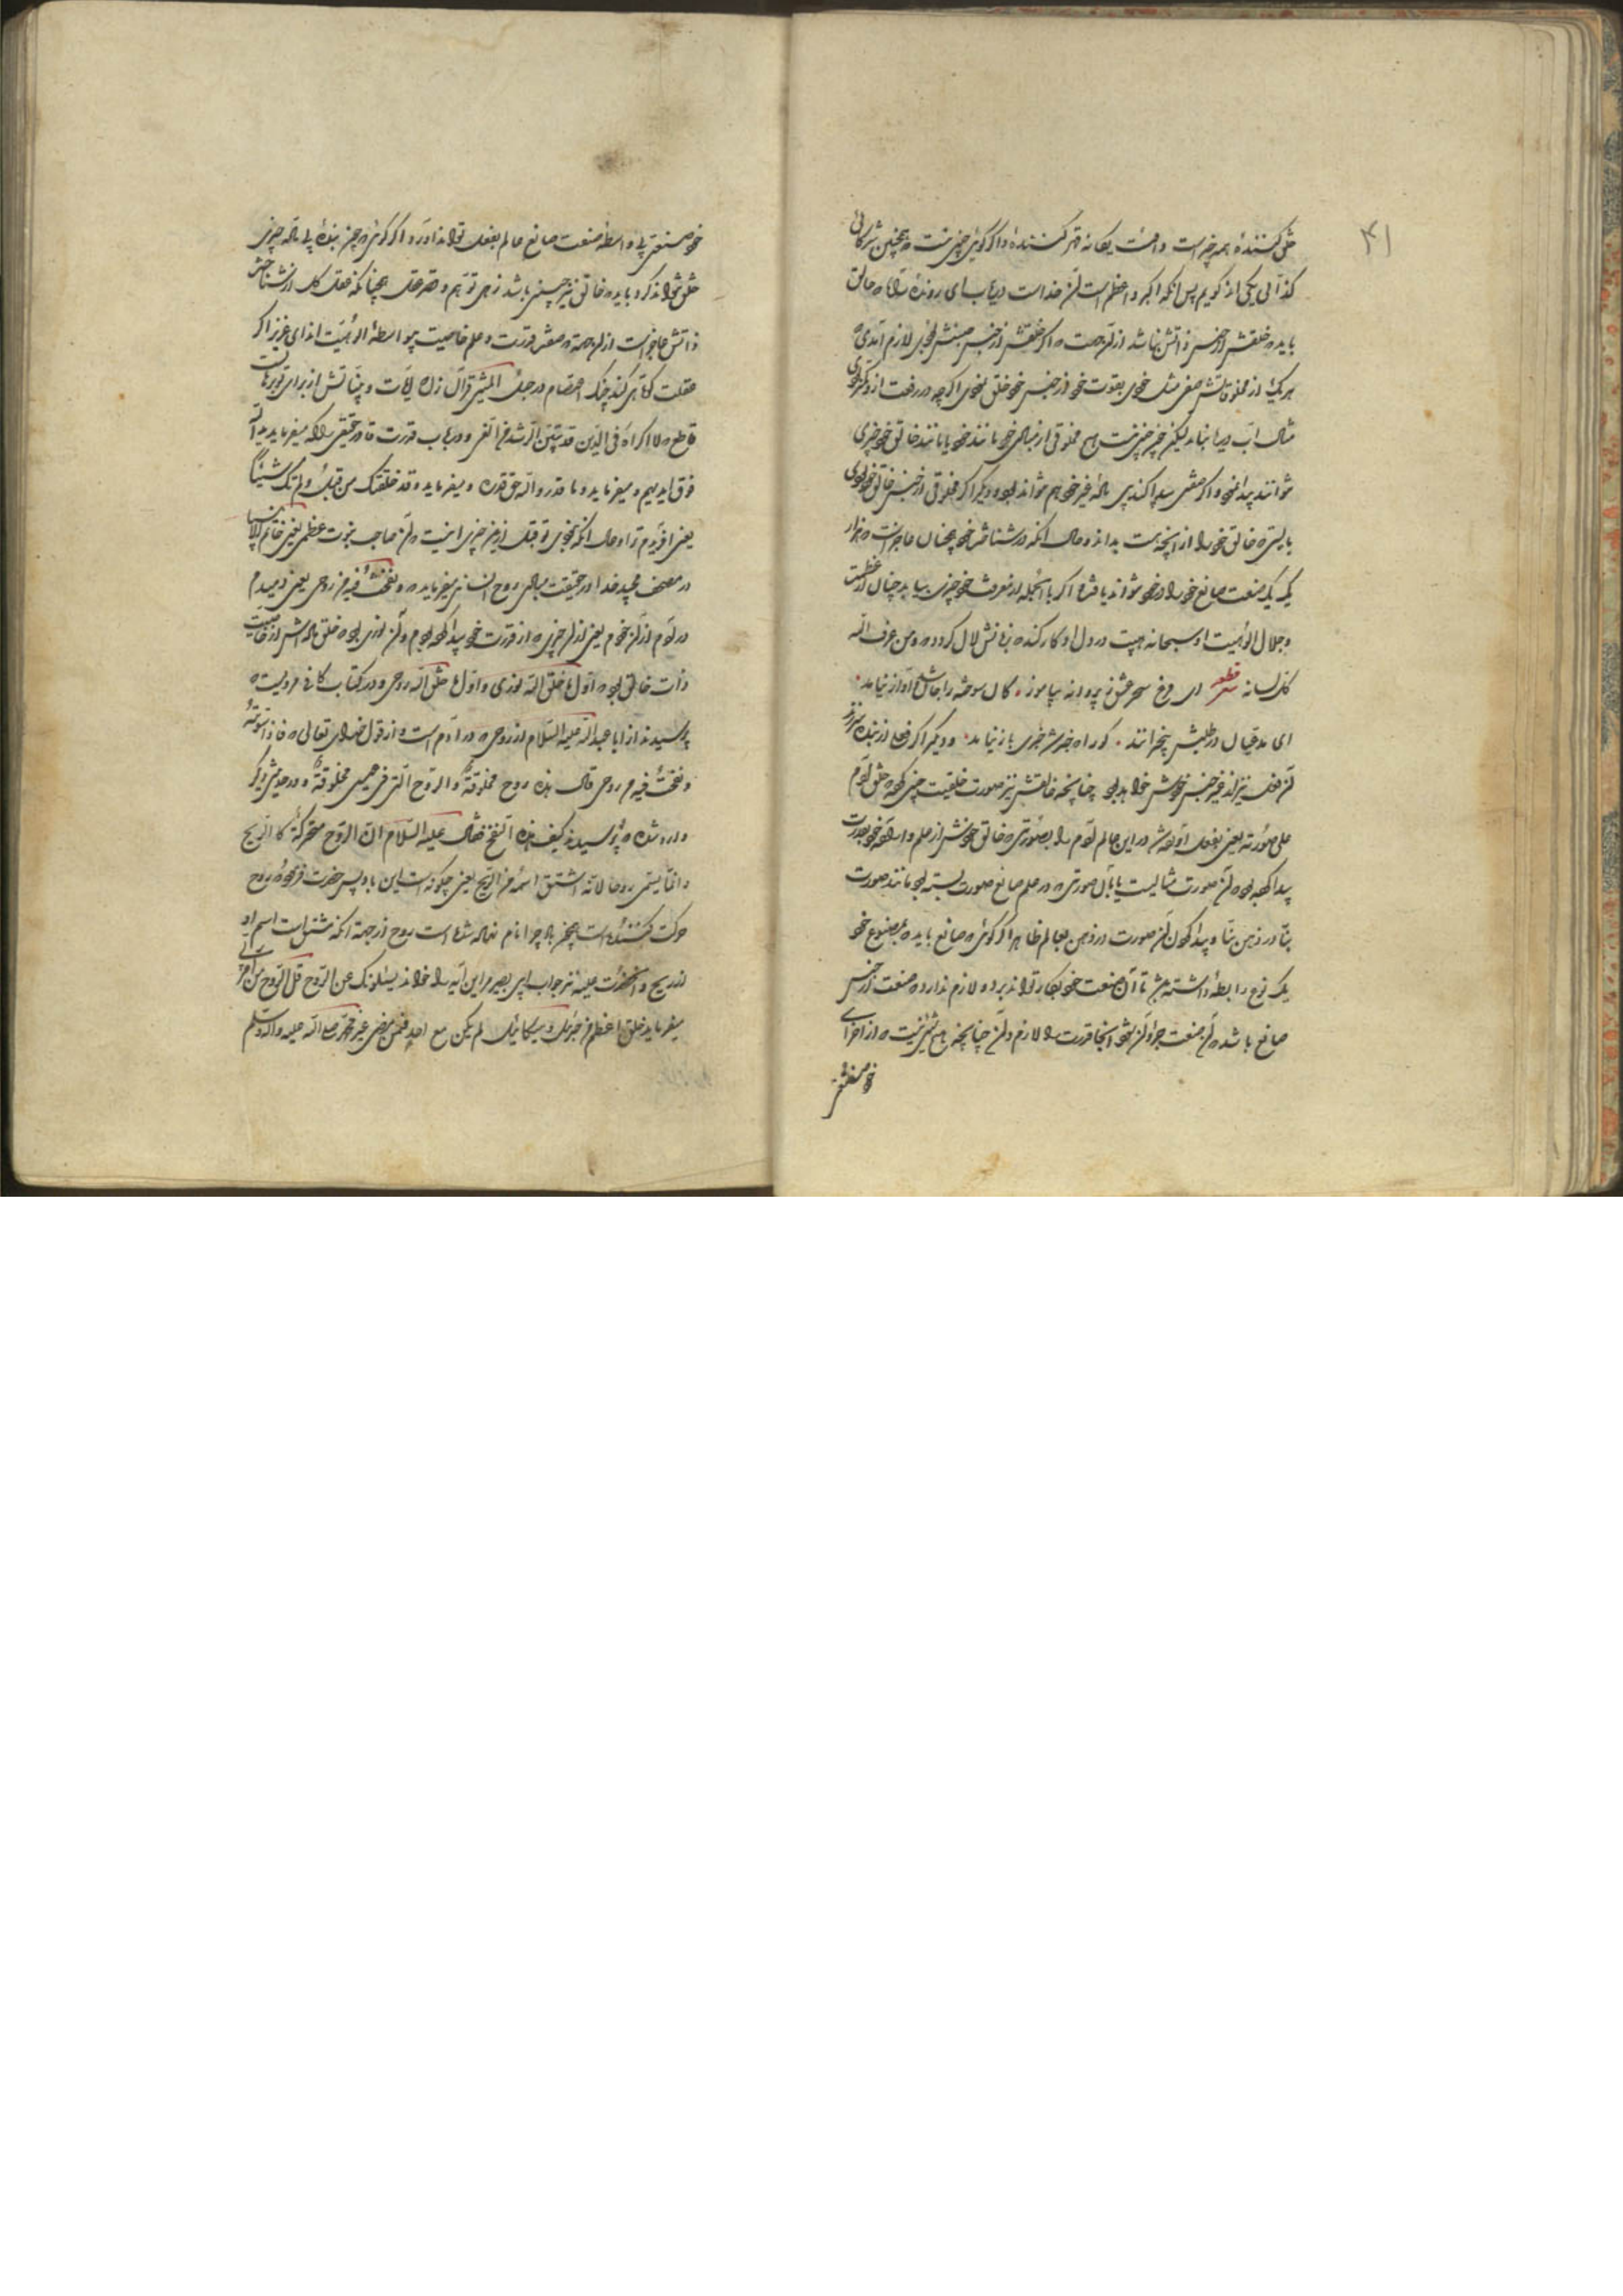 ۴۱
خلق کنندهٔ همه چیز است و اوست یگانه قهر کننده و اگر کوئی چیزی نیست همچنین
کذائی یکی اند کویم پس انکه اکبر و اعظم است آن خداست دریاب ای روندهٔ راه خالق
باید خلقش از جنس ذاتش نباشد از آن جهت که اگر خلقش از جنس لازم آمدی
هر یک از مخلوقاتش مثل خود بقوت خود از جنس خود خلق نمودی اگر چه در رفعت از دیگری
مثال آب دریا نباید لیکن چنین نیست هیچ مخلوقی از مانند خود یا مانند خالق خود چیزی
نتوانند پیدا نمود و اگر پیدا کند پس بالۀ غیر خود هم نتواند بود و دیگر اگر مخلوق از جنس خالق خود بودی
بایستی خالق خود را از آنچه هست بداند و حال آنکه در شناختن خود چنان عاجز است هزار
یک صنعت صانع خود را در خود نتواند یافت و اگر با اینجمله از معرفت خود چیزی بیابد چنان از عظمت
و جلال الوهیت او سبحانه هیبت در دل او کار کند که زبانش لال کردد و من عرف الله
کل لسانه قطعه ای مرغ سحر عشق ز پروانه بیاموز کان سوخته را جان شد و آواز نیامد
ای مدعیان در طلبش بیخبرانند کو را که خبر شد خبری باز نیامد و دیگر اگر فعلی از بنده سرزند
آن فعل نیز از غیر جنس خودش خواهد بود چنانچه خالقش نیز صورت خلقیت چنین که خلق آدم
علی صورته یعنی بفعل آورده شد در این عالم آدم را بصورتی که خالق خودش از علم و ارادهٔ خود بقدرت
پیدا کرده بود آن صورت مثالیست با آن صورتی در علم صانع صورت بسته بود مانند صورت
بنا در ذهن بنّا و پیدا کردن آن صورت در ذهن بعالم ظاهر اگر کوئی که صانع باید که بمصنوع خود
یک نوع رابطه داشته باشد تا آن صنعت خود بکار تواند برد و لازم ندارد که صنعت از جنس
صانع باشد آن صنعت جز آن اینجا قدرت را لازم و آن چنانچه هیچ شیئی نیست که از اجزای
خود صنعتی
خود صنعتی بی واسطه صنعت صانع عالم بفعل تواند آورد و اگر کوئی که چون بنده بی آله چیزی
خلق نتواند کرد باید که خالق نیز چنین باشد زهی توهم و تصور عقل همچنانکه عقل کل از شناختن
ذاتش عاجز است از آن جهة در صفت قدرت و علم خاصیت بیواسطهٔ الوهیت اند ای عزیز اگر
عقلت کوتاهی کند چنک اعتصام در حبل المتین قرآن زن که آیات و بیّناتش از برای تو برهانیست
قاطع لا اکراه فی الدین قد تبین الرشد من الغی و در باب قدرت قادر حقیقی الله میفرماید ید الله
فوق ایدیهم و میفرماید و ما قدروا الله حق قدره و میفرماید و قد خلقتک من قبل و لم تک شیئاً
یعنی آفریدم ترا و حال آنکه نبودی تو قبل ازین چیزی اینست که آن صاحب نبوت عظمی یعنی خاتم الانبیا
در مصحف مجید خدا در حقیقت روح انسانی میفرماید که و نفخت فیه من روحی یعنی دمیدم
در آدم از آن خودم یعنی از آن چیزی که از قدرت خود پیدا کرده بودم و آن نوری بود که خلق از خاصیت
ذات خالق بود که اول ما خلق الله نوری و اول ما خلق الله روحی و در کتاب کافی مرویست که
پرسیدند از ابا عبدالله علیه السلام از روحی که در آدم است و از قول خدای تعالی فاذا سویته
و نفخت فیه من روحی قال هذه روح مخلوقة و الروح التی فی عیسی مخلوقة و در حدیثی دیگر
وارد شده که پرسیدند کیف هذه النفخ فقال علیه السلام ان الروح متحرکة کالریح
و انما یسمی روحا لانه اشتق اسمه من الریح یعنی چکونه است این باد پس حضرت فرمود که روح
حرکت کننده است همچو باد چرا نام نهاده شده است روح از جهة آنکه مشتق است اسم او
از ریح و آنحضرت علیه نیز جواب ابی بصیر این آیه را خواند یسئلونک عن الروح قل الروح من امر ربی
میفرماید خلق اعظم من جبرئیل و میکائیل لم یکن مع احد ممن مضی غیر محمد صلی الله علیه و آله و سلم